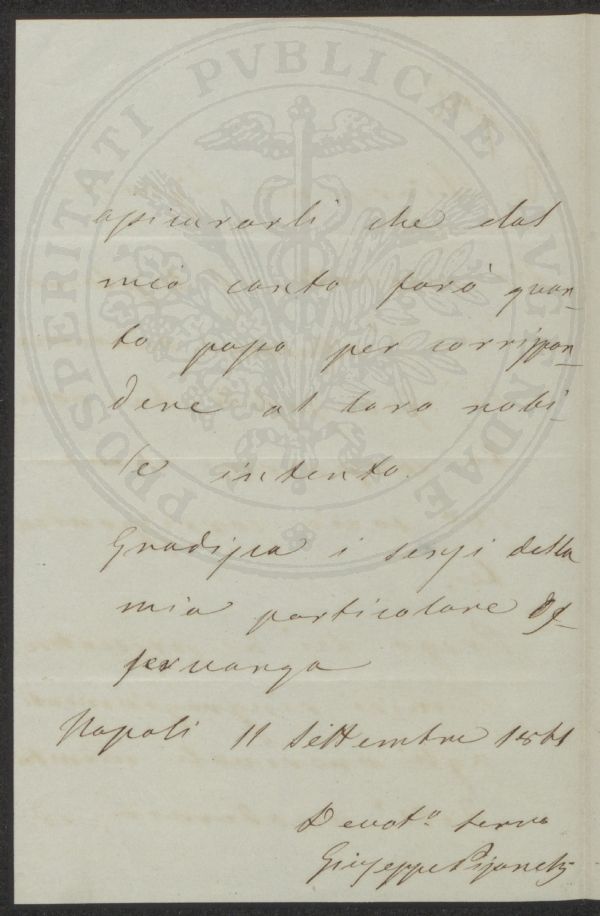 PROSPERITATI PVBLICAE AVGENDAE
assicurarli che dal
mio canto farò quan-
to posso per corrispon-
dere al loro nobi-
le intento.
Gradisca i sensi della
mia particolare os-
servanza
Napoli 11 Settembre 1861
Devot.o servo
Giuseppe